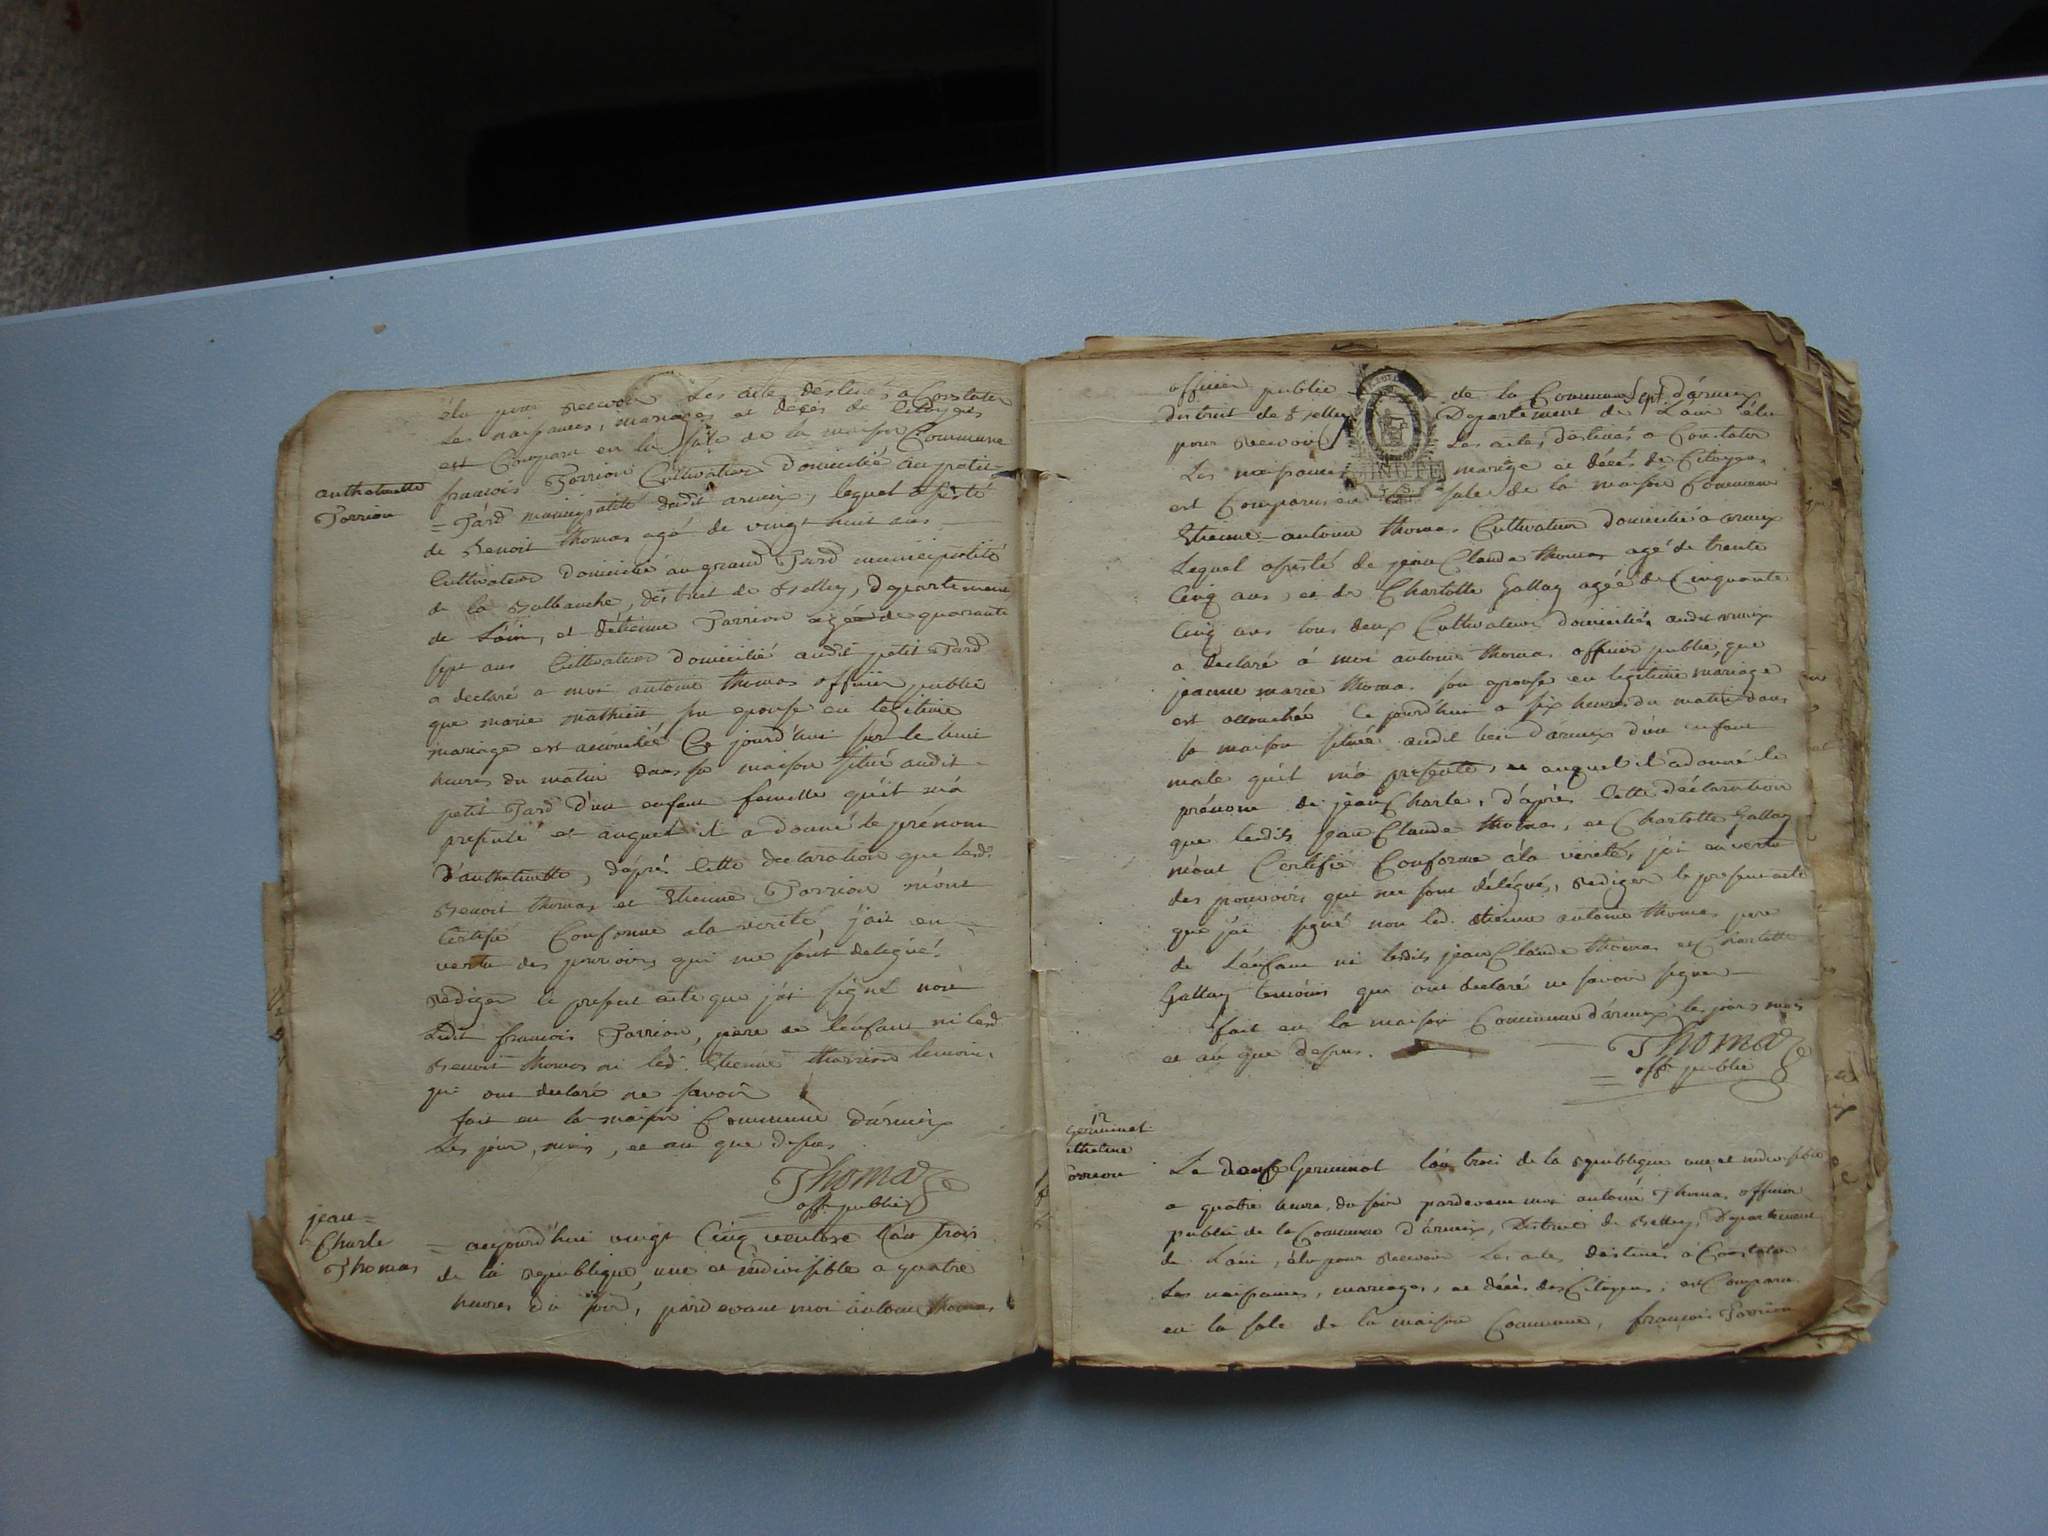 élu pour recevoir Les acte destinés a Constater
Les naissances, mariages et decés de Citoyens
est Comparu en la sale de la maison Commune
anthelmette
Torrion
françois Torrion Cultivateur Domicilié au petit
= Pard municipalité dudit armix, lequel assisté
de Benoit thomas agé de vingt huit ans
Cultivateur domicilié au grand Pard municipalité
de la Bulbanche, district de Belley, département
de Lain, et détienne Torrion agé de quarante
sept ans Cultivateur domicilié audit petit Pard
a declaré a moi antoine thomas officier public
que marie mathieu son epouse en legitime
mariage est accouchée Ce jourd'hui sur le huit
heures du matin dans sa maison situé audit
petit Pard d'un enfant femelle qu'il m'a
presenté et auquel il a donné le prénom
D'anthelmette, d'après Cette declaration que lesd.
Benoit thomas et Etienne Torrion m'ont
Certifié Conforme a la verité, j'ait en
vertu des pouvoirs qui me sont delegué
Rediger le present acte que j'ai signé non
Ledit françois Torrion, pere de lénfant ni led
Benoit thomas ni led. Etienne thorrion temoins
qui ont declaré ne savoir
fait en la maison Commune d'armix
Les jour, mois, et an que dessus
Thomas
off. public
jean=
Charle
Thomas
= aujourd'hui vingt Cinq ventose L'an trois
de la republique une et indivisible a quatre
heures du soir, pardevant moi antoine thomas
officier public de la Commune d'armix
district de Belley Departement de Lain élu
pour recevoir Les actes destinés a Constater
Les naissances mariage et décés de Citoyens
est Comparu en la sale de la maison Commune
Etienne antoine thomas Cultivateur domicilié a armix
Lequel assisté de jean Claude thomas agé de trente
Cinq ans, et de Charlotte Gallay agée de Cinquante
Cinq ans tous deux Cultivateurs domiciliés audit armix
a declaré à moi antoine thomas officier public, que
jeanne marie thomas son epouse en legitime mariage
est accouchée Ce jourd'hui a six heures du matin dans
sa maison située audit lieu d'armix d'un enfant
male qu'il m'a presenté, et auquel il a donné le
prénom de jean Charle, d'après Cette déclaration
que lesdits jean Claude thomas, et Charlotte Gallay
m'ont Certifié Conforme à la verité, j'ai en vertu
des pouvoirs qui me sont délégués, rediger le present acte
que j'ai signé non led. etienne antoine thomas pere
de Lénfant ni lesdits jean Claude thomas et Charlotte
Gallay temoins qui ont declaré ne savoir signer
fait en la maison Commune d'armix les jour, mois
et an que dessus.
Thomas
off. public
12
germinal
Torrion
Le douse Germinal L'an trois de la republique une et indivisible
a quatre heure du soir pardevant moi antoine Thomas officier
public de la Commune d'armix, District de Belley, Departement
de Lain, élu pour recevoir Les actes destinés à Constater
Les naissances, mariages, et décès des Citoyens, est Comparu
en la sale de la maison Commune, françois Torrion